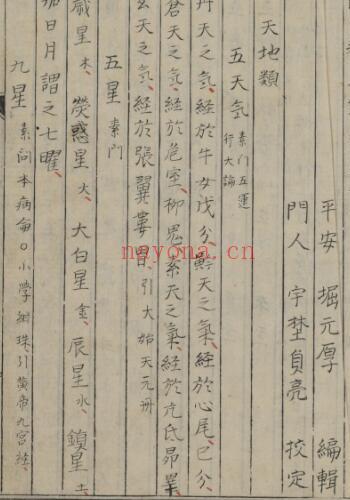 平安 堀元厚 編輯
門人 宇埜貞亮 挍定
天地類
五天氣 素門五運行大論
丹天之氣、經於牛女戊分、黅天之氣、經於心尾、已分
蒼天之氣、經於危室、柳鬼、素天之氣、經於亢氐昴畢、
玄天之氣、經於張翼婁胃、引大始天元册
五星 素門
歲星木、熒惑星火、大白星金、辰星水、鎮星土、
加日月謂之七曜、
九星 素問本病侖○小學紺珠引黄帝九宮経、
nayona.cn